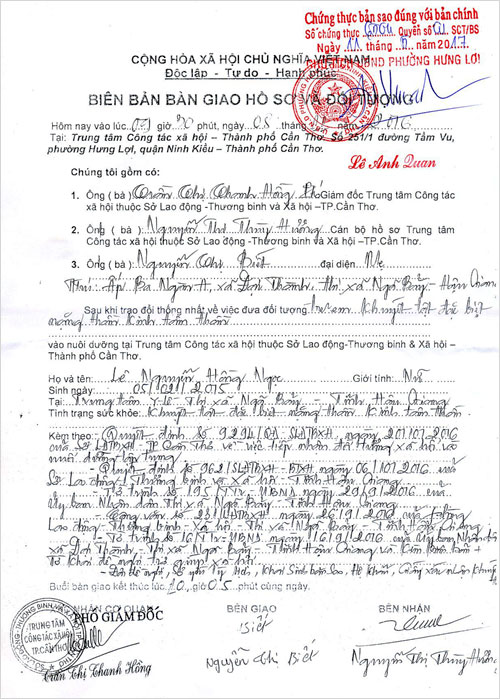 Chứng thực bản sao đúng với bản chính
Số chứng thực Quyển số SCT/BS
Ngày 11 tháng năm 2017
UBND PHƯỜNG HƯNG LỢI
CỘNG HÒA XÃ HỘI CHỦ NGHĨA VIỆT NAM
Độc lập - Tự do - Hạnh phúc
BIÊN BẢN BÀN GIAO HỒ SƠ VÀ ĐỐI TƯỢNG
Hôm nay vào lúc giờ phút, ngày 08 tháng năm 2016
Tại: Trung tâm Công tác xã hội – Thành phố Cần Thơ. Số 251/1 đường Tầm Vu,
phường Hưng Lợi, quận Ninh Kiều – Thành phố Cần Thơ.
Lê Anh Quan
Chúng tôi gồm có:
1. Ông ( bà) Trần Thị Thanh Hồng Phó Giám đốc Trung tâm Công tác
xã hội thuộc Sở Lao động -Thương binh và Xã hội –TP.Cần Thơ.
2. Ông ( bà) Nguyễn Thị Thùy Hương Cán bộ hồ sơ Trung tâm
Công tác xã hội thuộc Sở Lao động -Thương binh và Xã hội -TP.Cần Thơ.
3. Ông ( bà) Nguyễn Thị Biết đại diện Mẹ
Ấp Ba Ngàn A, xã Đại Thành, thị xã Ngã Bảy - Hậu Giang
Sau khi trao đổi thống nhất về việc đưa đối tượng trẻ em khuyết tật đặc biệt
nặng thần kinh tâm thần
vào nuôi dưỡng tại Trung tâm Công tác xã hội thuộc Sở Lao động-Thương binh& Xã hội –
Thành phố Cần Thơ.
Họ và tên: Lê Nguyễn Hồng Ngọc Giới tính: Nữ
Sinh ngày: 05/01/2015
Tại: Trung tâm Y tế Thị xã Ngã Bảy - Tỉnh Hậu Giang
Tình trạng sức khỏe: Khuyết tật đặc biệt nặng thần kinh tâm thần
Kèm theo: Quyết định số ngày 2016
của Sở LĐTBXH - TP Cần Thơ về việc tiếp nhận đối tượng xã hội vào
nuôi dưỡng tập trung
- Quyết định số 962/SLĐTBXH - BTXH ngày 06/10/2016 của
Sở Lao động Thương binh và xã hội - Tỉnh Hậu Giang
- Tờ trình số 195/TTr-UBND ngày 29/9/2016 của
Ủy ban Nhân dân Thị xã Ngã Bảy - Tỉnh Hậu Giang
- Công văn số LĐTBXH ngày 2016 của Phòng
Lao động - Thương binh - Xã hội - Thị xã Ngã Bảy - Tỉnh Hậu Giang
- Tờ trình số 16/TTr-UBND ngày 16/9/2016 của Ủy ban Nhân dân
xã Đại Thành, Thị xã Ngã Bảy - Tỉnh Hậu Giang và
Tờ khai đề nghị trợ giúp xã hội
- Đơn đề nghị, Sơ yếu lý lịch, Khai Sinh bản sao, Hộ khẩu, Giấy xác nhận khuyết tật
Buổi bàn giao kết thúc lúc 10 giờ 05 phút cùng ngày.
NHẬN CƠ QUAN
PHÓ GIÁM ĐỐC
TRUNG TÂM
CÔNG TÁC XÃ HỘI
TP.CẦN THƠ
Trần Thị Thanh Hồng
BÊN GIAO
Biết
Nguyễn Thị Biết
BÊN NHẬN
Nguyễn Thị Thùy Hương